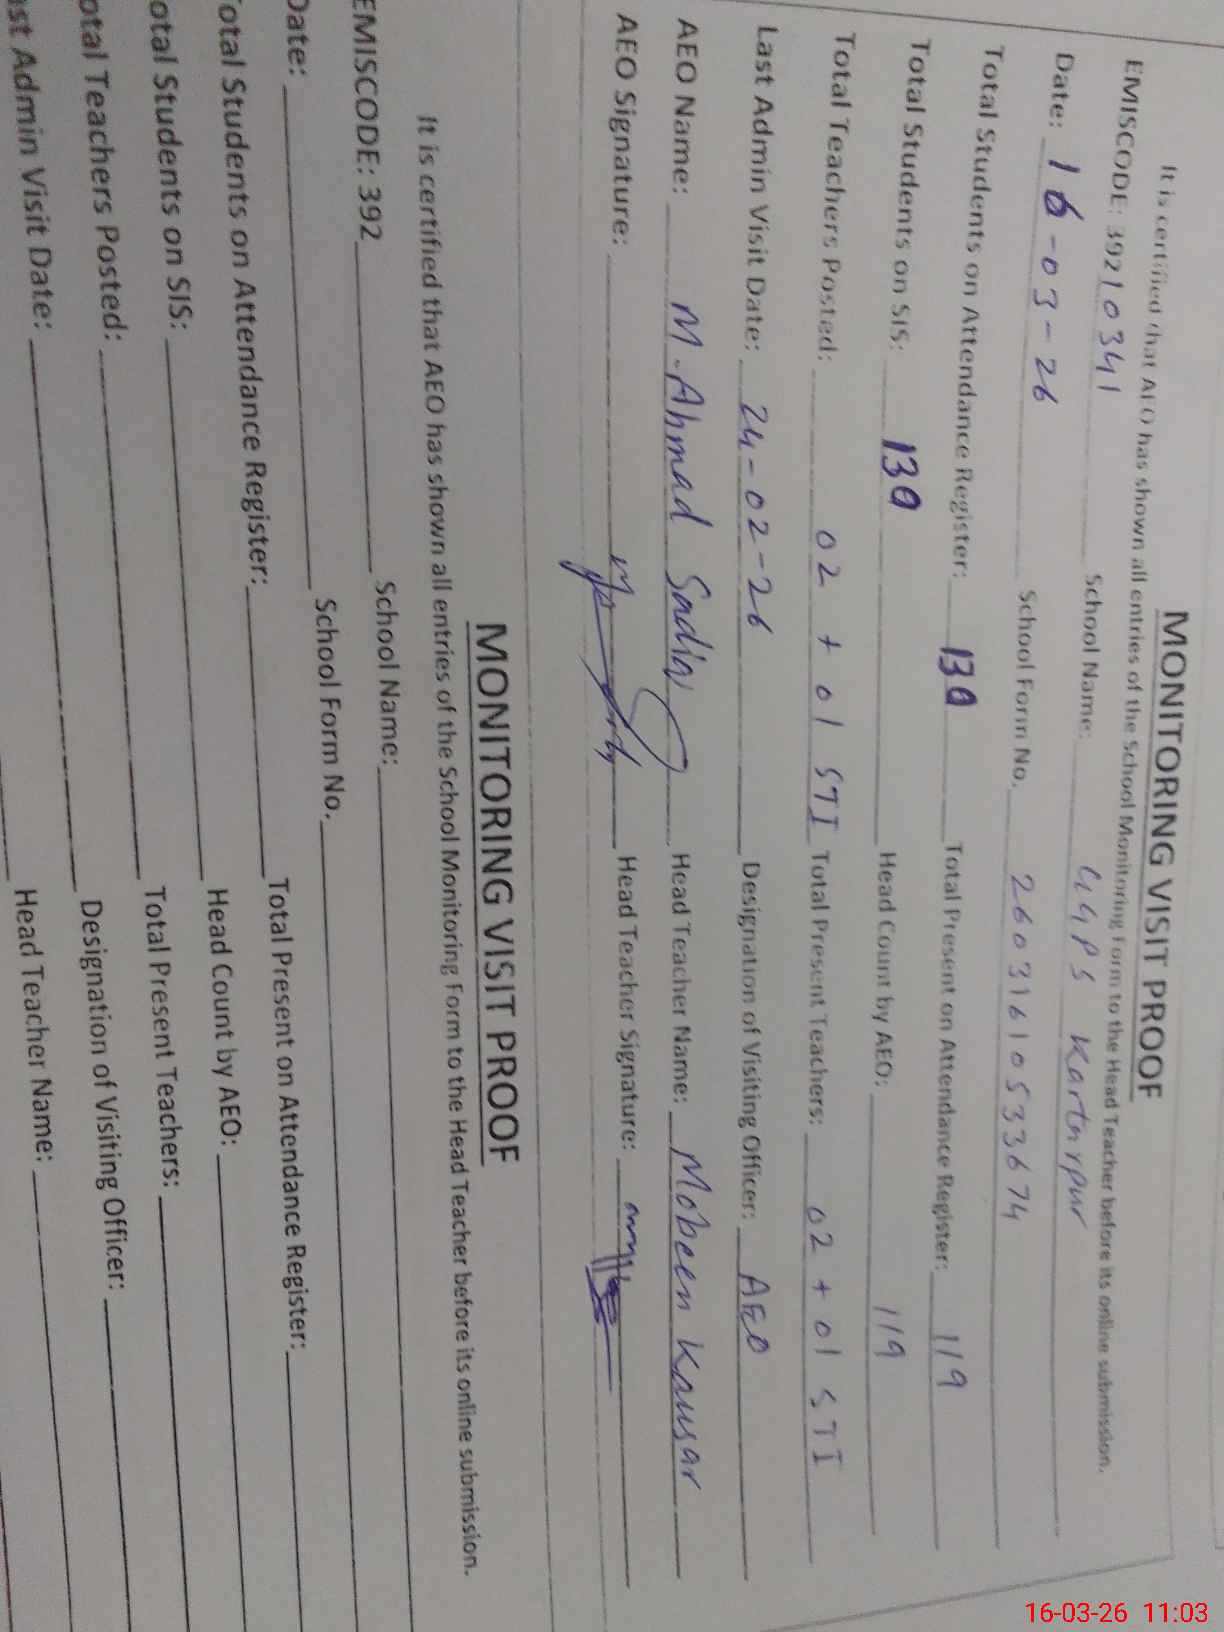 MONITORING VISIT PROOF
It is certified that AEO has shown all entries of the School Monitoring Form to the Head Teacher before its online submission.
EMISCODE: 39210341 School Name: GGPS Kartarpur
Date: 16-03-26 School Form No. 2603161053 3674
Total Students on Attendance Register: 130 Total Present on Attendance Register: 119
Total Students on SIS: 130 Head Count by AEO: 119
Total Teachers Posted: 02 + 01 STI Total Present Teachers: 02 + 01 STI
Last Admin Visit Date: 24-02-26 Designation of Visiting Officer: AEO
AEO Name: M. Ahmad Head Teacher Name: Mobeen Kausar
AEO Signature: Head Teacher Signature:
MONITORING VISIT PROOF
It is certified that AEO has shown all entries of the School Monitoring Form to the Head Teacher before its online submission.
EMISCODE: 392 School Name:
Date: School Form No.
Total Students on Attendance Register: Total Present on Attendance Register:
otal Students on SIS: Head Count by AEO:
otal Teachers Posted: Total Present Teachers:
ast Admin Visit Date: Designation of Visiting Officer:
Head Teacher Name:
16-03-26 11:03